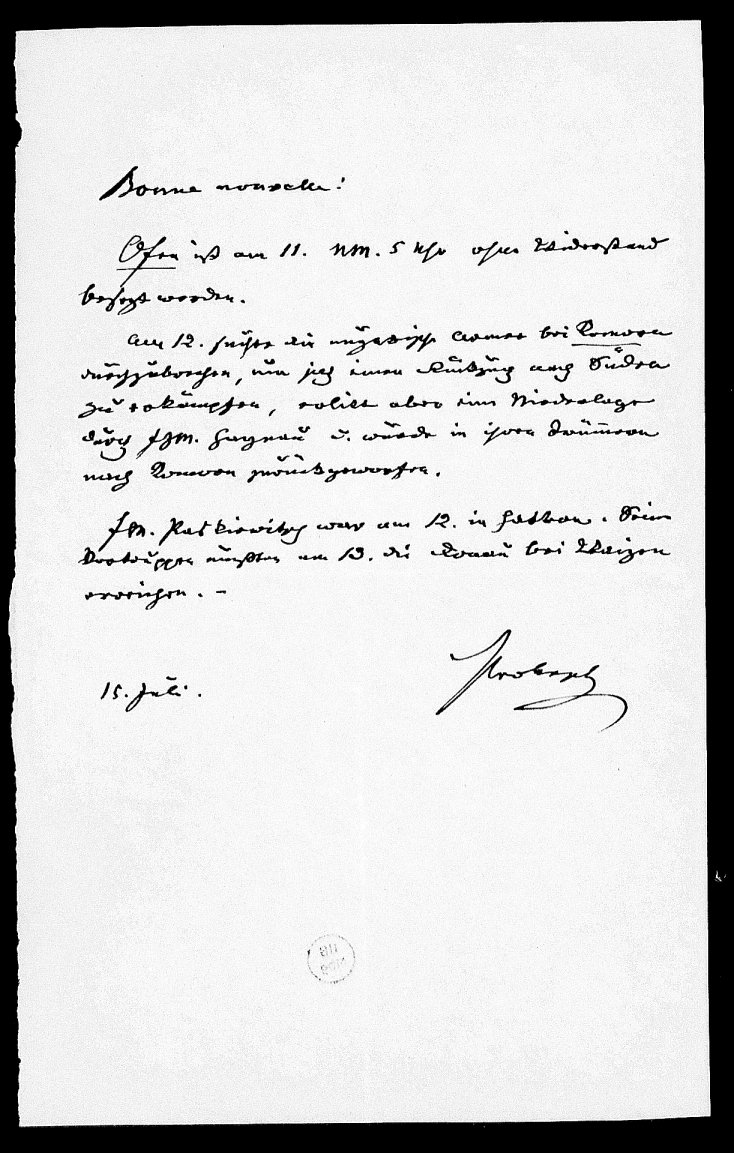 Bonne nouvelle!
Ofen ist am 11. NM. 5 Uhr ohne Widerstand
besezt worden.
Am 12. suchte die ungarische Armee bei Komorn
durchzubrechen, um sich einen Rückzug nach Süden
zu erkämpfen, erlitt aber eine Niederlage
durch FZM. Haynau u. wurde in ihren Trümmern
nach Komorn zurückgeworfen.
FM. Paskiewitsch war am 12. in Hatvan. Seine
Vortruppen mußten am 13. die Donau bei Waizen
erreichen. –
15. Juli.
Prokesch